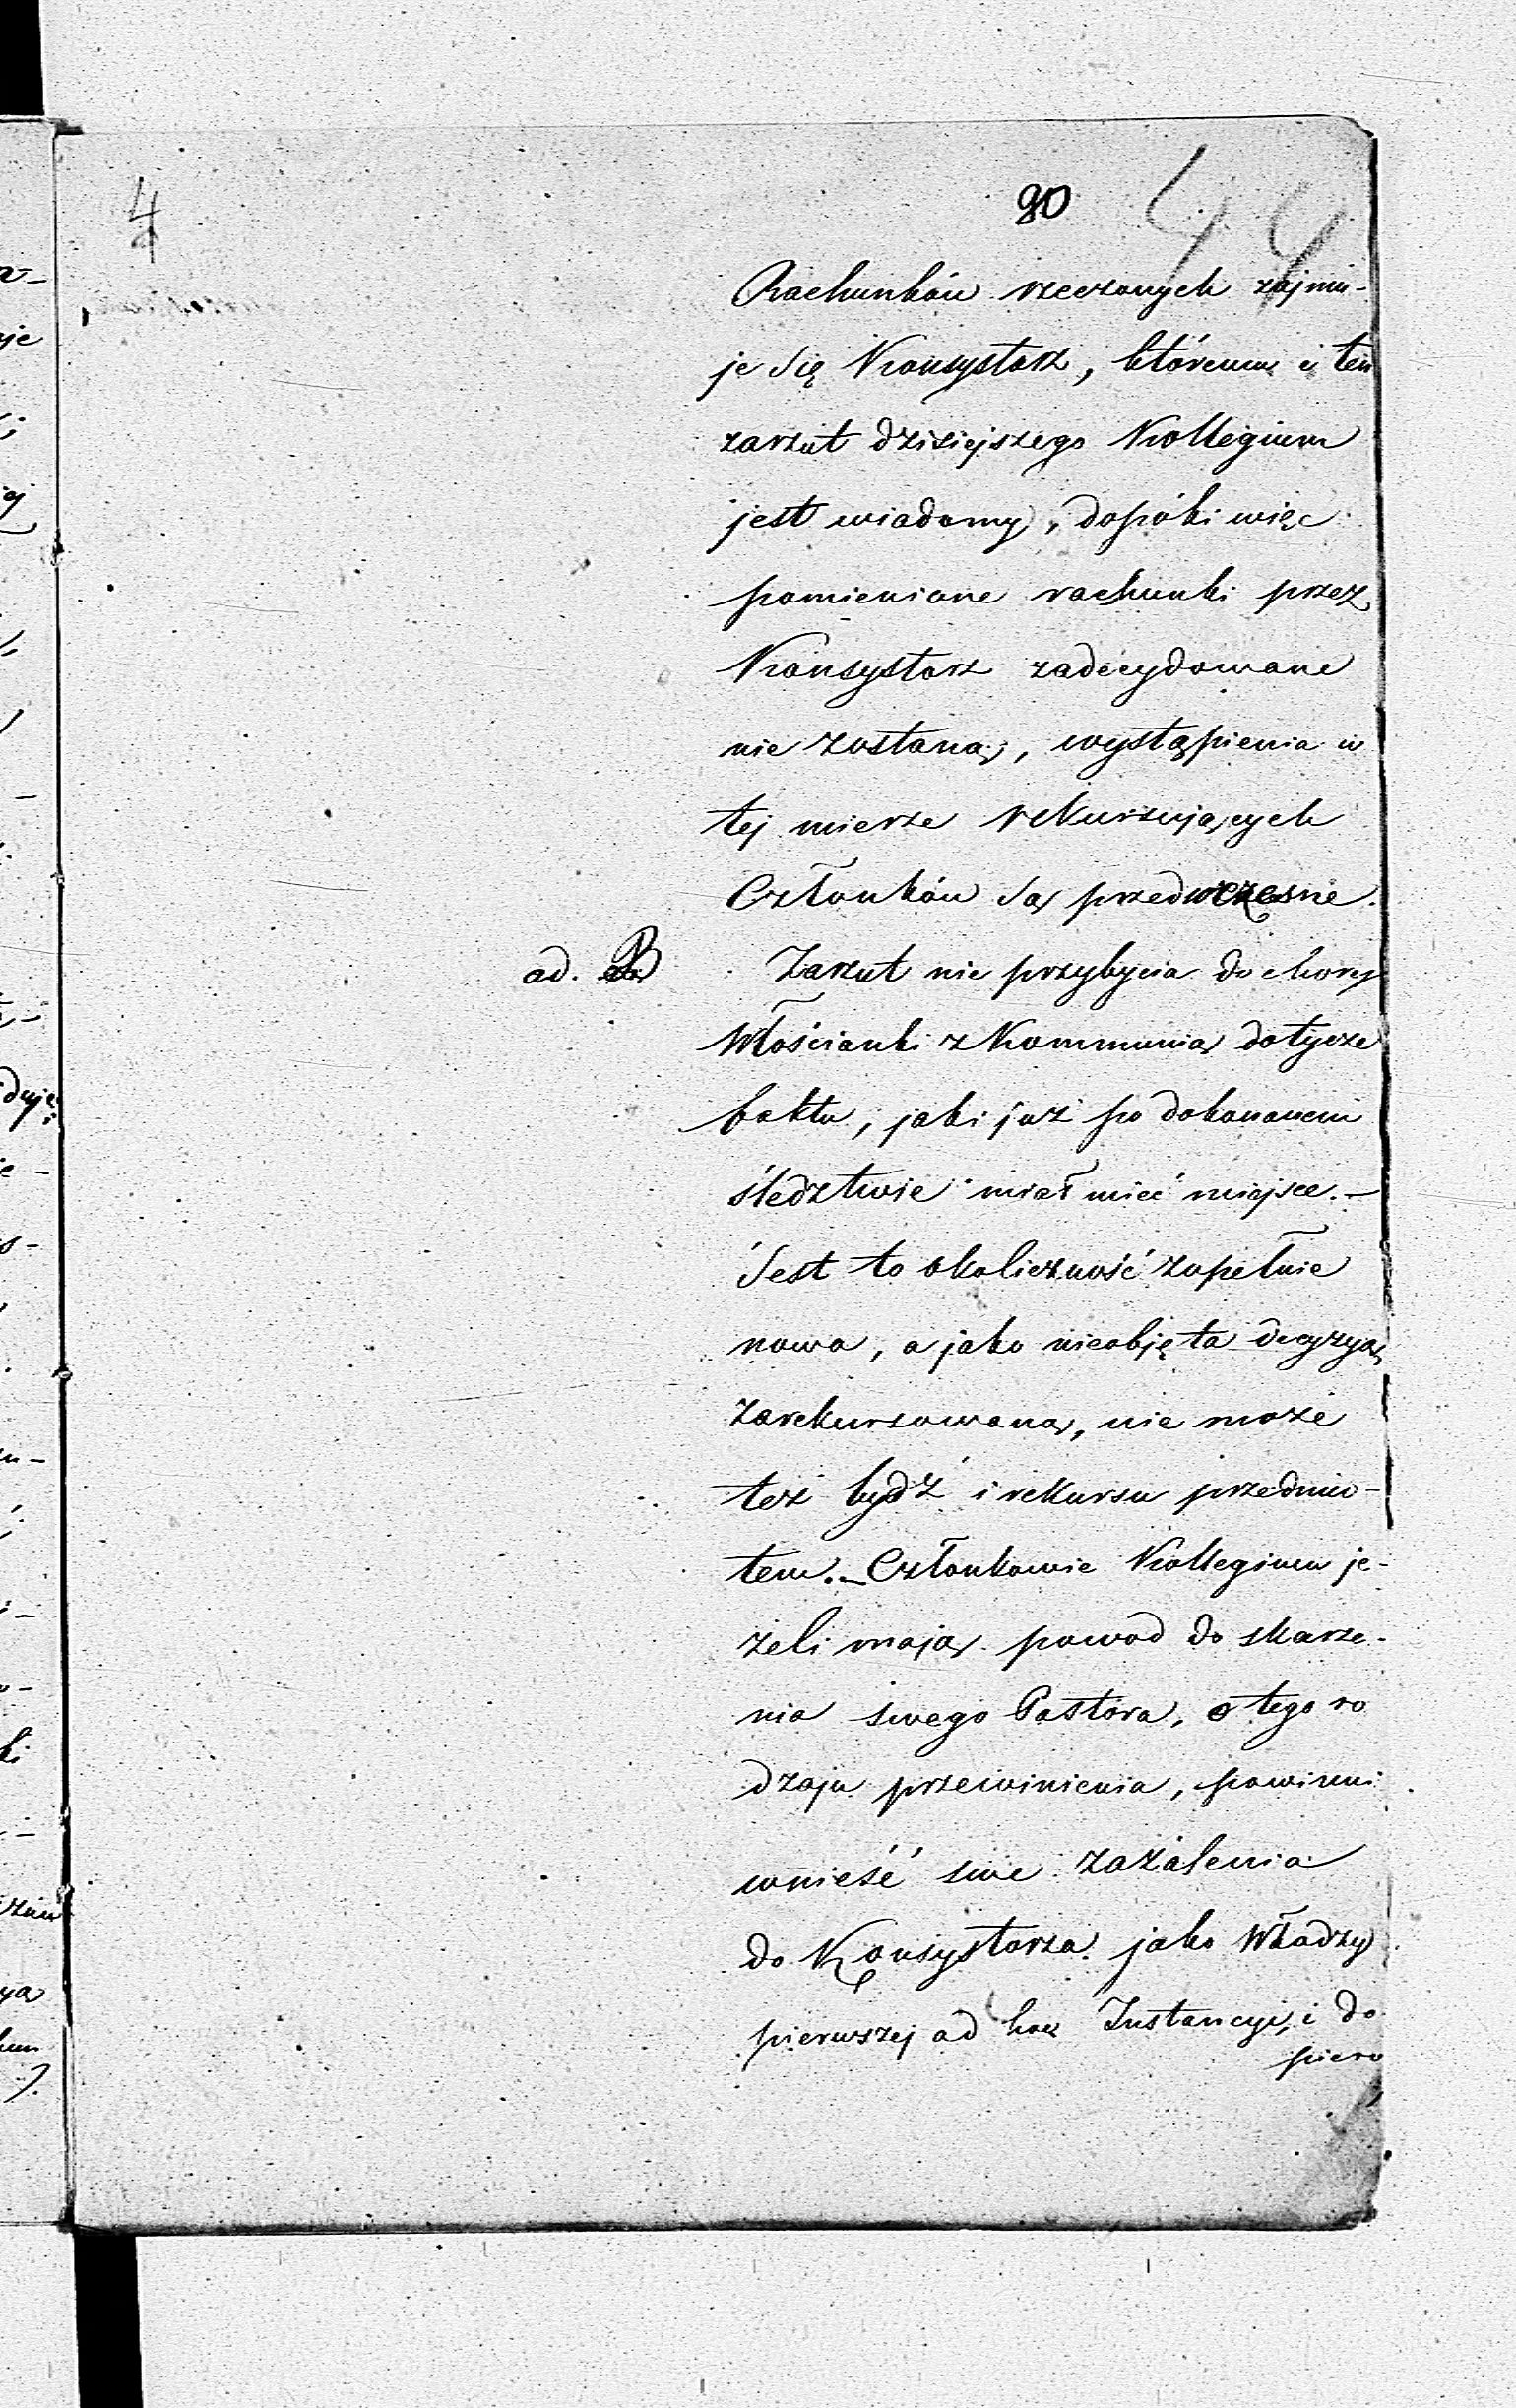 4
90
44
Rachunków rzeczonych zajmu-
je się Konsystorz, któremu i ten
zarzut dzisiejszego Kollegium
jest wiadomy, dopóki więc
pomienione rachunki przez
Konsystorz zadecydowane
nie zostaną, wystąpienia w
tej mierze rekursujących
Członków są przedwczesne.
ad. B Zarzut nie przybycia do chorej
Włościanki z Kommunią dotycze
faktu, jaki już po dokonanem
śledztwie miał mieć miejsce. –
Jest to okoliczność zupełnie
nowa, a jako nieobjęta decyzyą
zarekursowaną, nie może
też bydź i rekursu przedmio-
tem. – Członkowie Kollegium je-
żeli mają powod do skarże-
nia swego Pastora, o tego ro
dzaju przewinienia, powinni
wnieść swe zażalenia
do Konsystorza jako Władzy
pierwszej ad hoc Instancyi, i do
piero